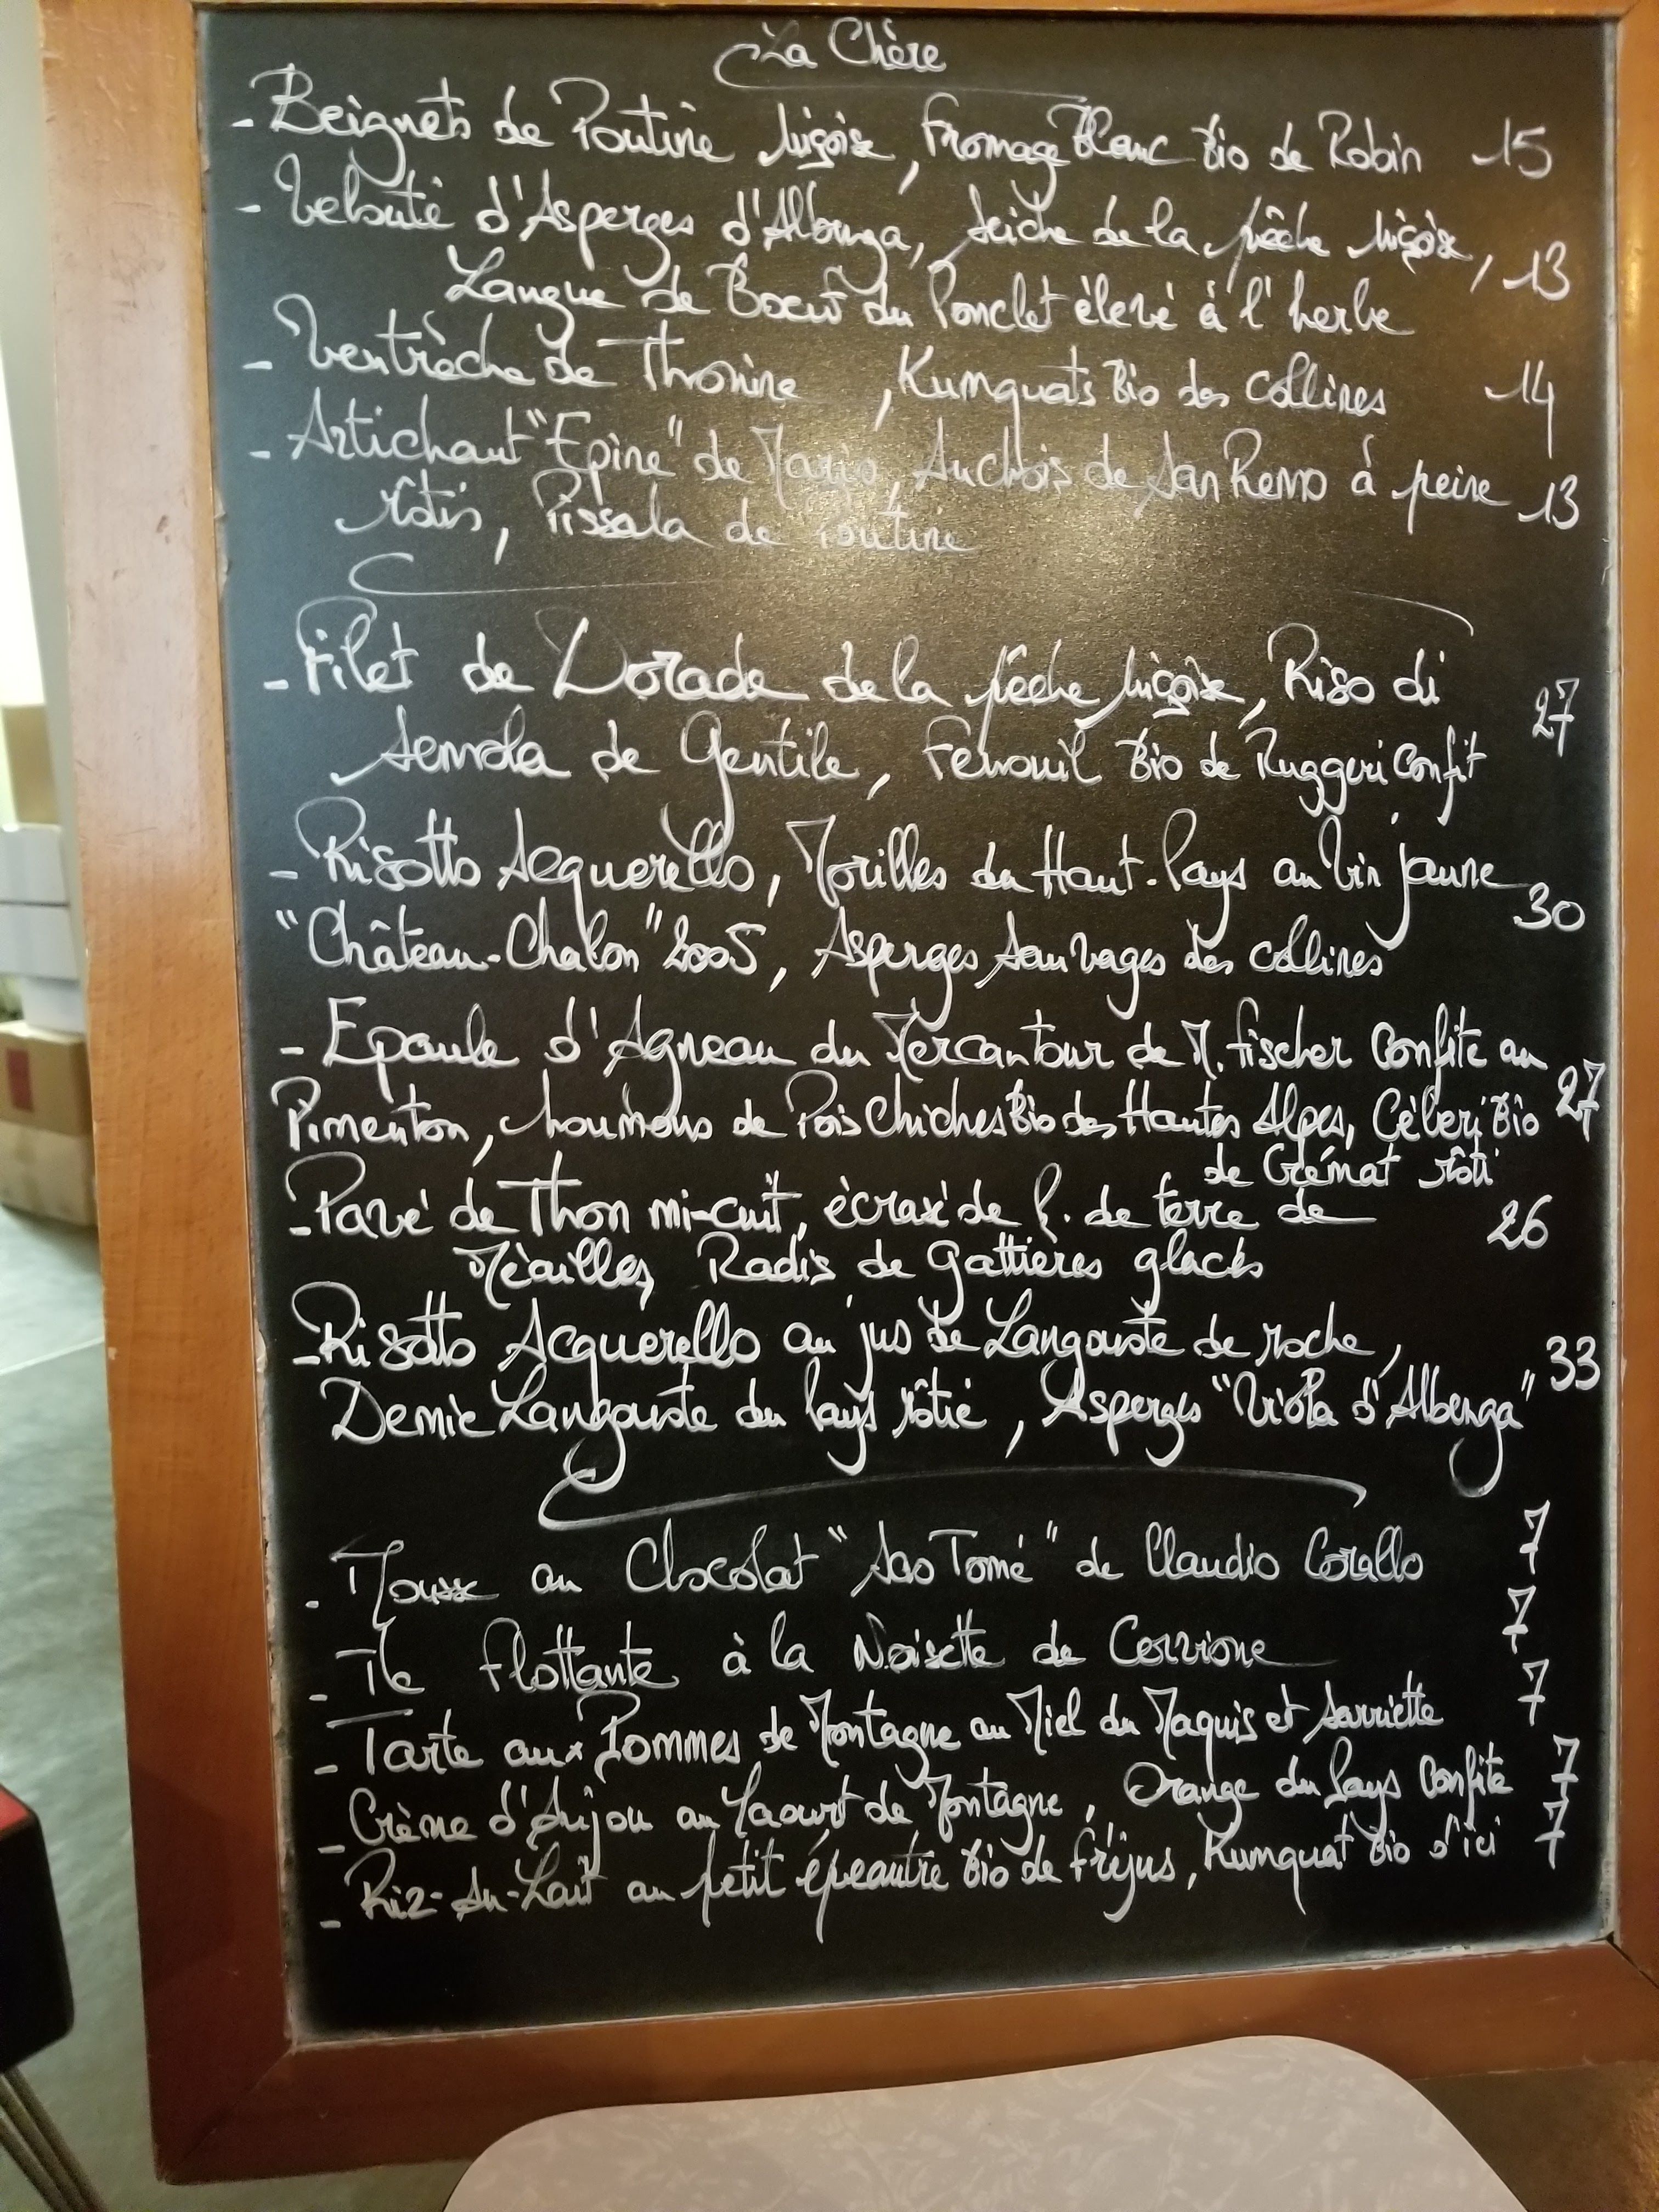 La Chère
- Beignets de Poutine Niçoise, Fromage Blanc Bio de Robin 15
- Velouté d'Asperges d'Albenga, Seiche de la pêche Niçoise, 13
Langue de Boeuf du Ponclet élevé à l'herbe
- Ventrèche de Thonine, Kumquats Bio des collines 14
- Artichaut "Epine" de Mario, Anchois de San Remo à peine 13
rôtis, Pissala de Poutine
- Filet de Dorade de la pêche Niçoise, Riso di 27
Semola de Gentile, Fenouil Bio de Ruggeri Confit
- Risotto Acquerello, Morilles du Haut-Pays au Vin jaune 30
"Château-Chalon" 2005, Asperges Sauvages des collines
- Epaule d'Agneau du Mercantour de M. Fischer Confite au
Pimenton, houmous de Pois Chiches Bio des Hautes Alpes, Céleri Bio 27
de Crémat rôti
- Pavé de Thon mi-cuit, écrasé de p. de terre de 26
Méailles, Radis de Gattières glacés
- Risotto Acquerello au jus de Langouste de roche, 33
Demie Langouste du Pays rôtie, Asperges "Viola d'Albenga"
- Mousse au Chocolat "Sao Tomé" de Claudio Corallo 7
- Ile Flottante à la Noisette de Cervione 7
- Tarte aux Pommes de Montagne au Miel du Maquis et Sarriette 7
- Crème d'Anjou au Yaourt de Montagne, Orange du Pays Confite 7
- Riz-Au-Lait au petit épeautre Bio de Fréjus, Kumquat Bio d'ici 7